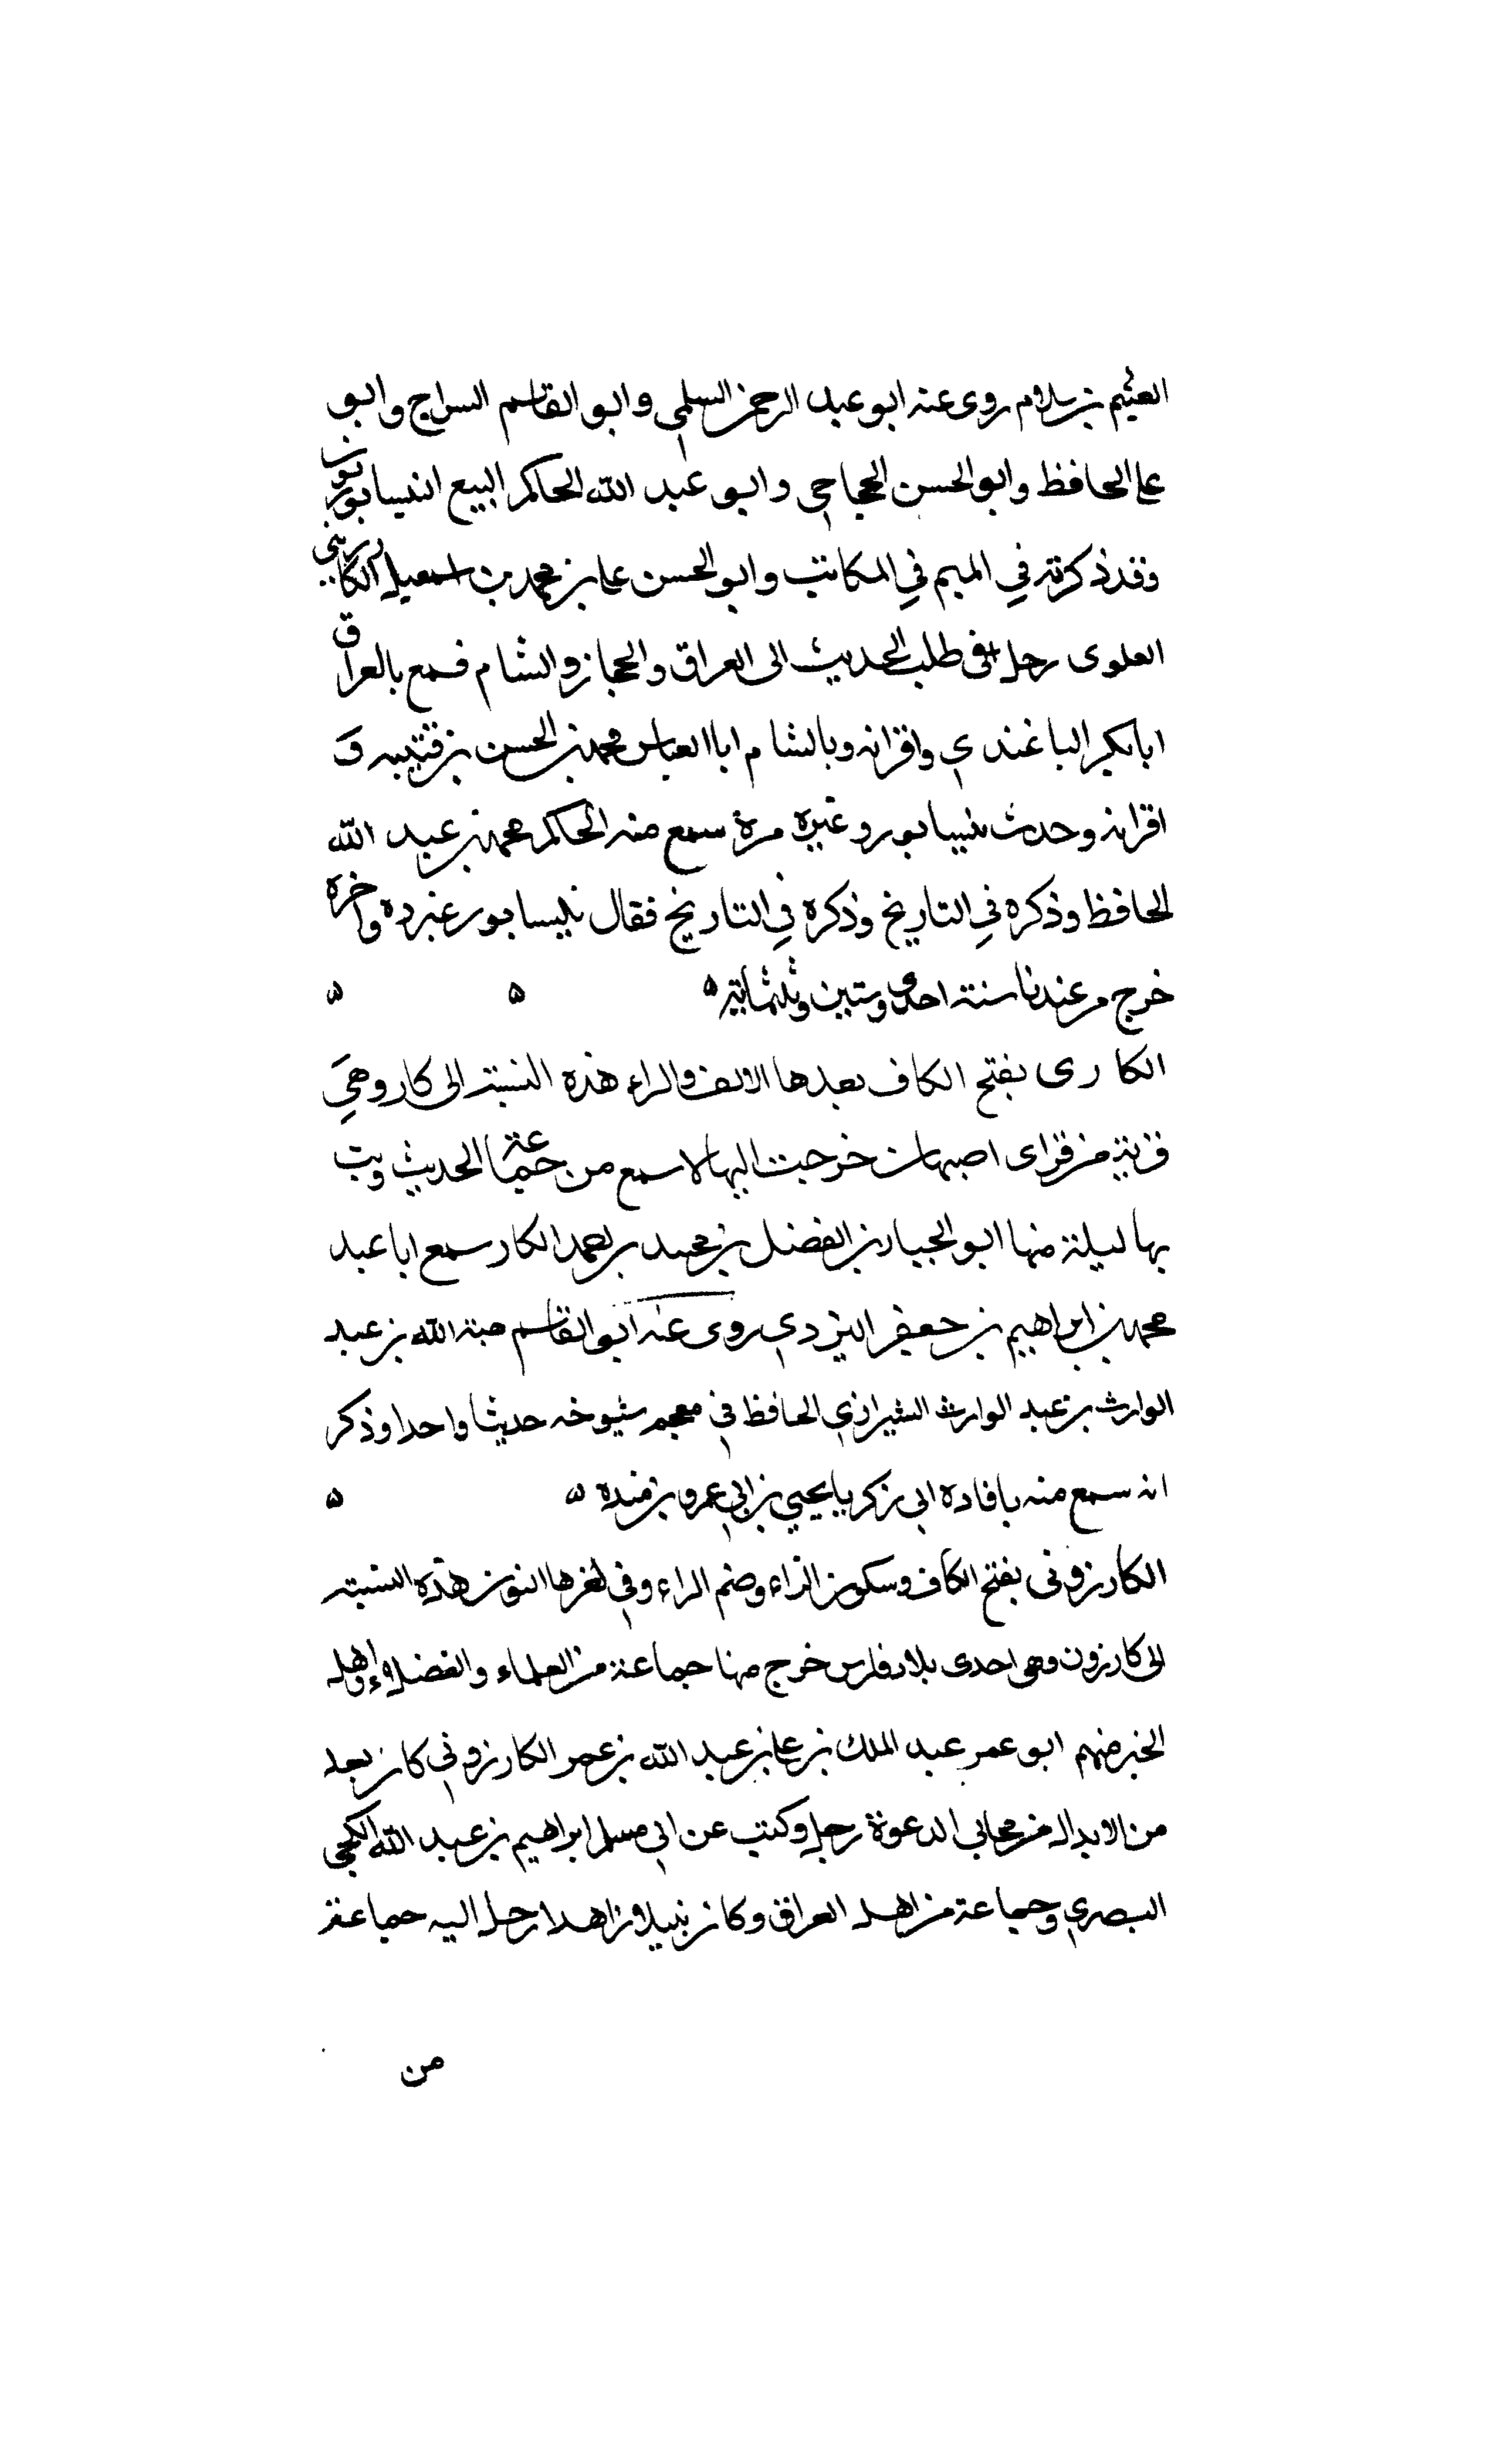 العثيم بن سلام روى عنه ابو عبد الرحمن السلمي وابو القاسم السراج وابو
على الحافظ وابو الحسن الحجاجي وابو عبد الله الحاكم البيع النيسابوريون
وقد ذكرته في الميم في المكاتب وابو الحسن على بن محمد بن اسمعيل الكارزيني
العلوى رحل في طلب الحديث الى العراق والحجاز والشام فسمع بالعراق
ابا بكر الباغندي واقرانه وبالشام ابا العباس محمد بن الحسن بن قتيبه و
اقرانه وحدث بنيسابور وغيره مرة سمع منه الحاكم محمد بن عبد الله
الحافظ وذكره في التاريخ وذكره في التاريخ فقال نيسابور غير ده واخره
خرج من عندنا سنة احدى وستين وثلثمائة ه ه ه
الكارى بفتح الكاف بعدها الالف والراء هذه النسبة الى كار وهي
قرية من قراى اصبهان خرجت اليها لاسمع من جماعة الحديث وبت
بها ليلة منها ابو الجبار بن الفضل بن محمد بن احمد الكار سمع ابا عبد
محمد بن ابراهيم بن جعفر اليزدي روى عنه ابو القاسم هبة الله بن عبد
الوارث بن عبد الوارث الشيرازي الحافظ في معجم شيوخه حديثا واحدا وذكر
انه سمع منه بافاده ابى زكريا يحيي بن ابي عمرو بن منده ه ه
الكارزونى بفتح الكاف وسكون الراء وضم الزاء وفي اخرها النون هذه النسبة
الى كارزون وهى احدى بلاد فارس خرج منها جماعة من العلماء والفضلاء واهل
الخير منهم ابو عمر عبد الملك بن على بن عبد الله بن عمر الكارزوني كان يعد
من الابدال من مجابى الدعوة رحل وكتب عن ابي مسلم ابراهيم بن عبد الله الكجي
البصري وجماعة من اهل العراق وكان نبيلا زاهدا رحل اليه جماعة
من